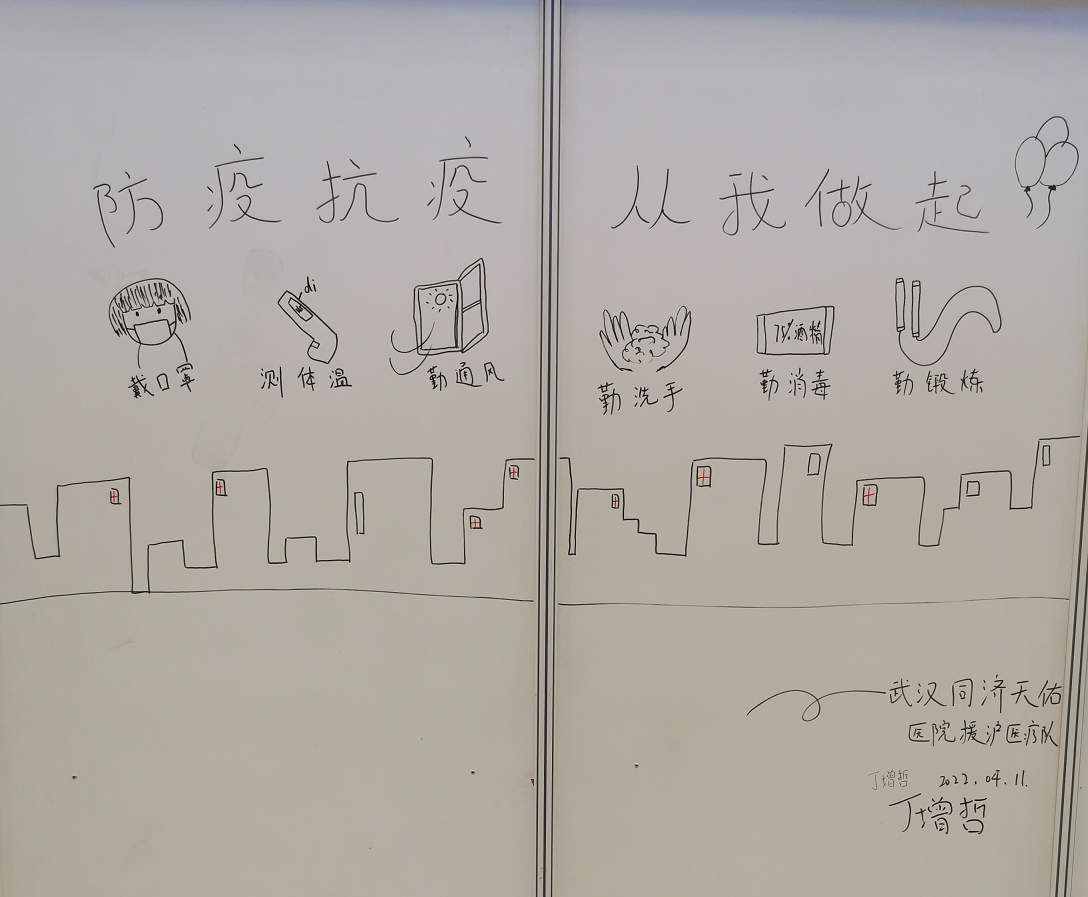 防疫抗疫 从我做起
di
75%酒精
戴口罩 测体温 勤通风 勤洗手 勤消毒 勤锻炼
武汉同济天佑
医院援沪医疗队
丁增哲 2022.04.11.
丁增哲